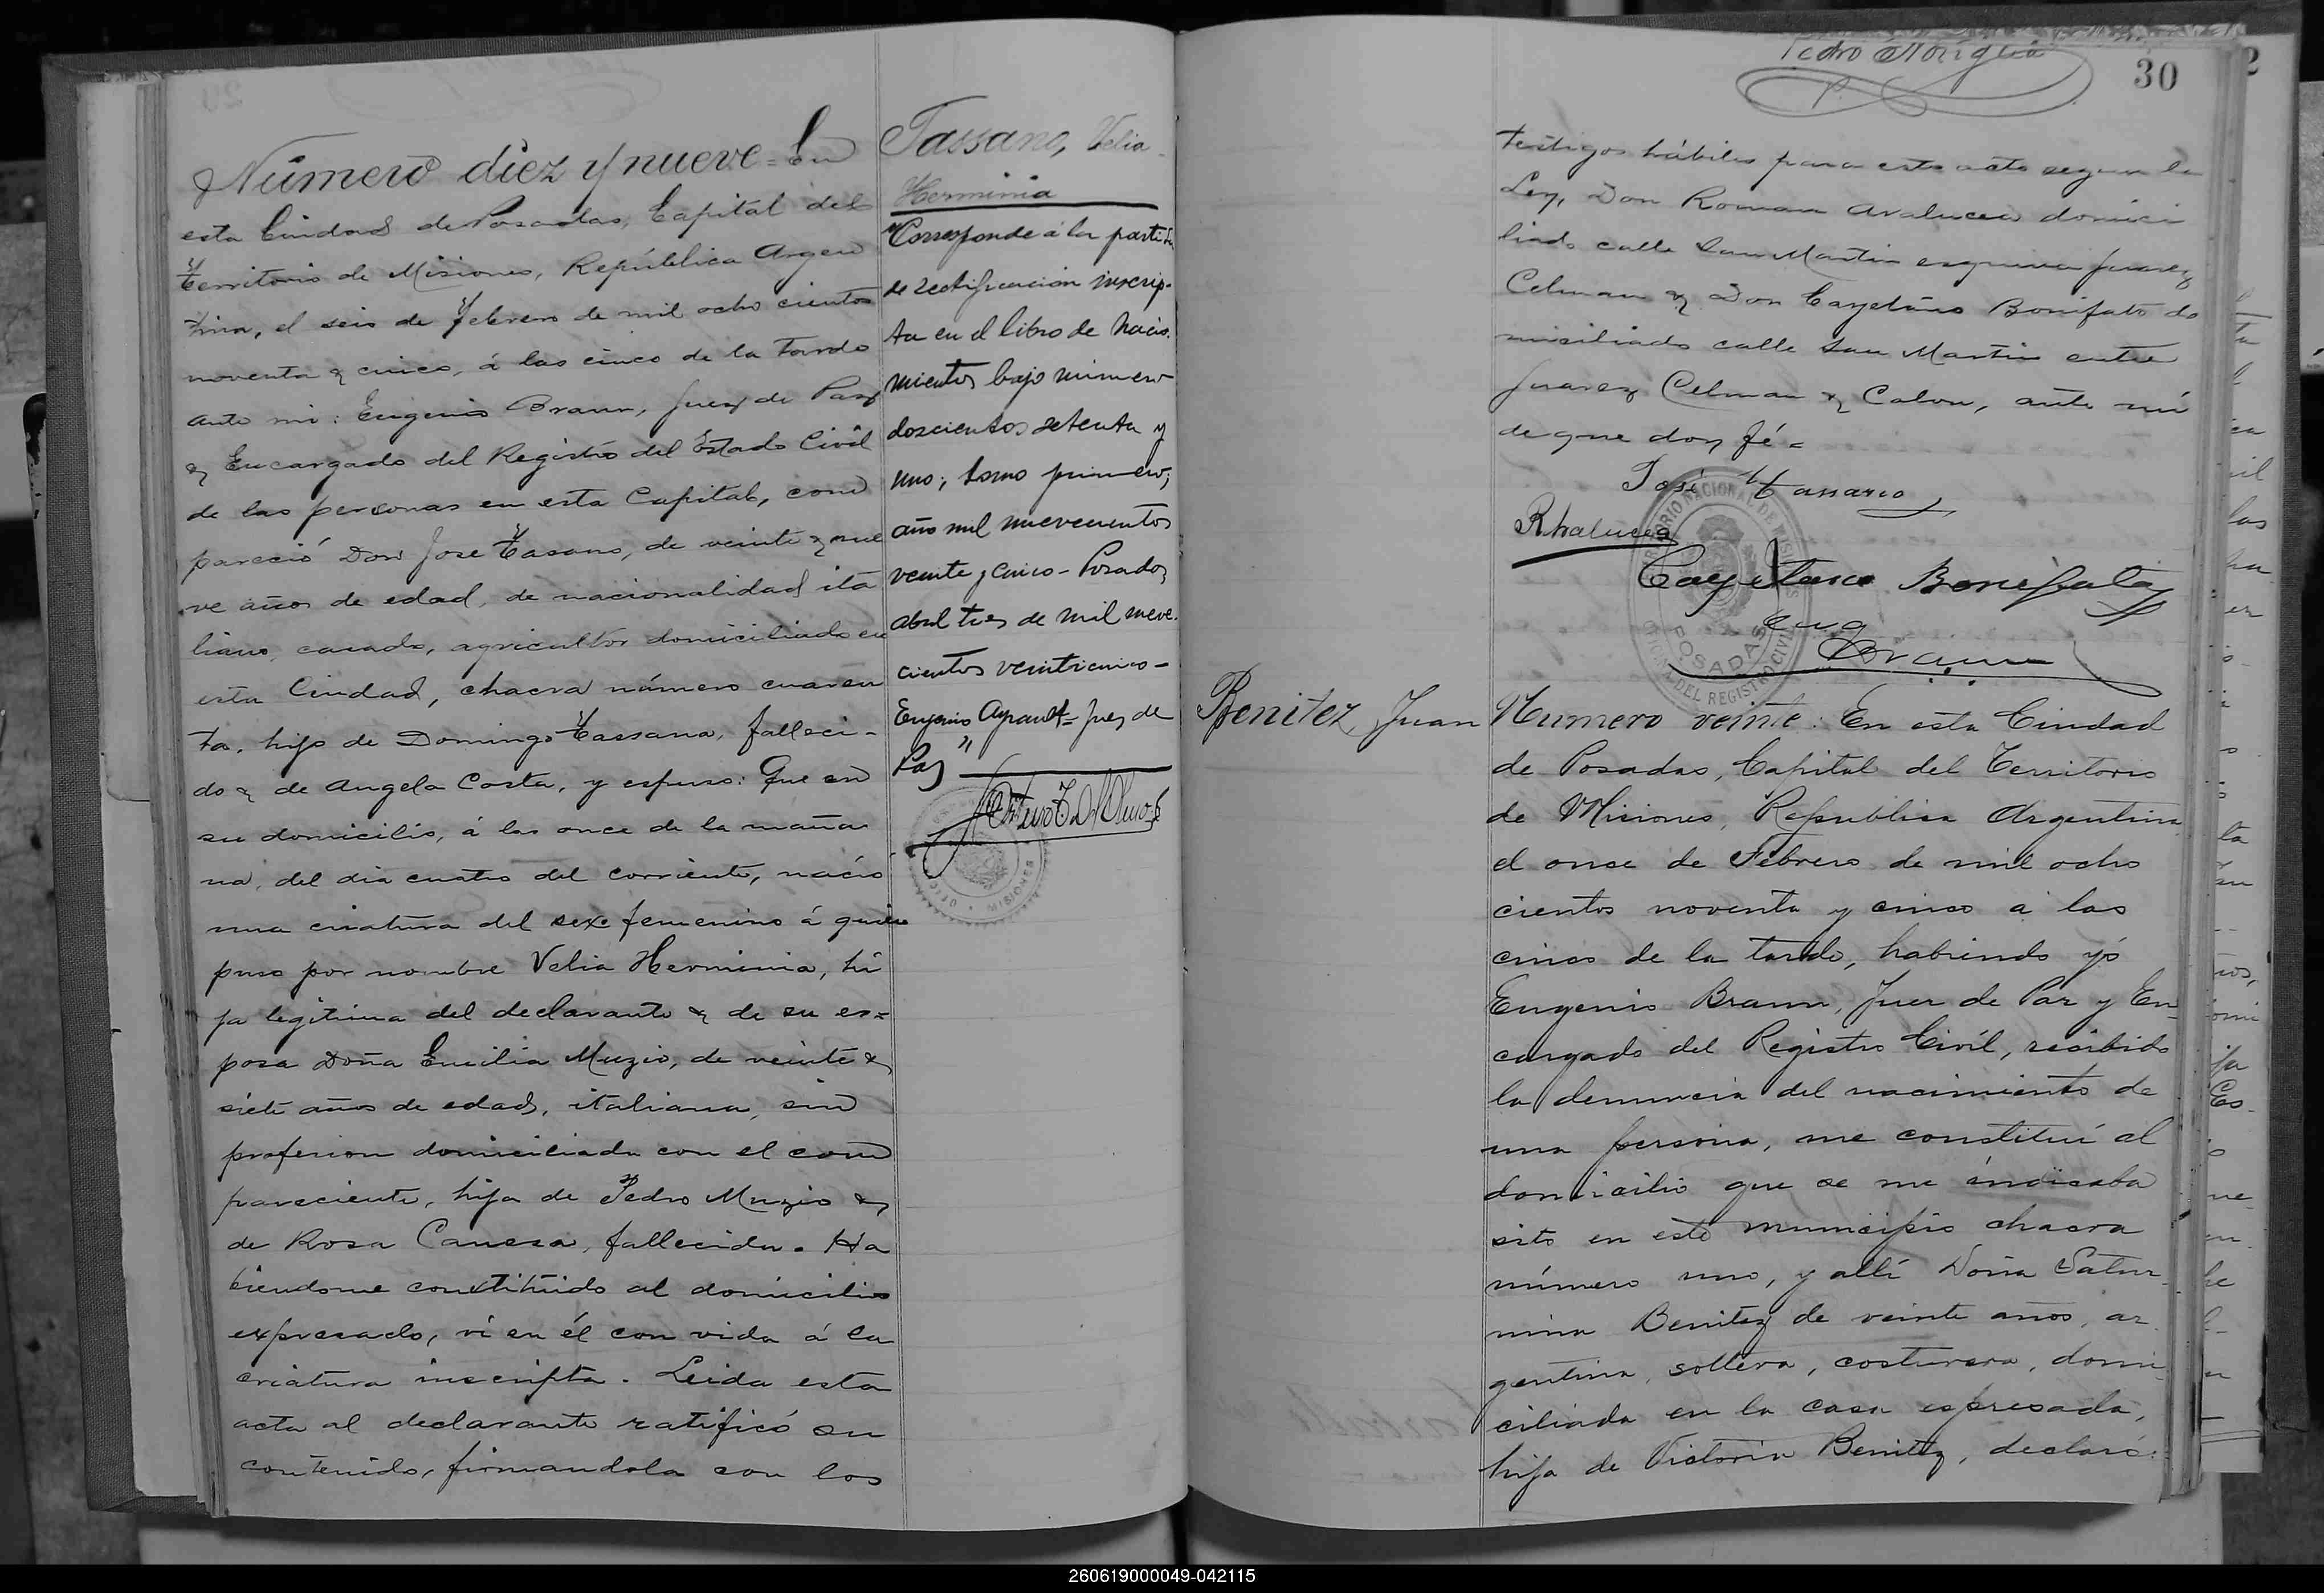 Número diez y nueve = En
esta Ciudad de Posadas, Capital del
Territorio de Misiones, República Argen
tina, el seis de Febrero de mil ocho cientos
noventa y cinco, á las cinco de la tarde
ante mi: Eugenio Braun, Juez de Paz
y Encargado del Registro del Estado Civil
de las personas en esta Capital, com
pareció Don Jose Tasano, de veinte y nue
ve años de edad, de nacionalidad ita
liano, casado, agricultor domiciliado en
esta Ciudad, chacra número cuaren
ta, hijo de Domingo Tassano, falleci-
do y de Angela Costa, y espuso: Que en
su domicilio, á las once de la maña
na, del dia cuatro del corriente, nació
una criatura del sexo femenino á quien
puso por nombre Velia Herminia, hi
ja legitima del declarante y de su es=
posa Doña Emilia Muzio, de veinte y
siete años de edad, italiana, sin
profesion domiciliada con el com
pareciente, hija de Pedro Muzio y
de Rosa Canessa, fallecida. Ha
biendome constituido al domicilio
expresado, vi en él con vida á la
criatura inscripta. Leida esta
acta al declarante ratificó su
contenido, firmandola con los
Tassano, Velia
Herminia
"Corresponde á la partida
de rectificación inscrip-
ta en el libro de naci-
mientos bajo número
doscientos setenta y
uno; tomo primero;
año mil nuevecientos
veinte y cinco - Posadas,
abril tres de mil nueve-
cientos veinticinco -
Eugenio Ayrault = Juez de
Paz"
MISIONES
Pedro
30
testigos hábiles para este acto segun la
Ley, Don Roman Avalucea domici
liado calle San Martin esquina Juarez
Celman y Don Cayetano Bonifato do
miciliado calle San Martin entre
Juarez Celman y Colon, ante mi
de que doy fé =
José Tassano
R Avalucea
Cayetano Bonifato
Eug
Braun
TERRITORIO NACIONAL DE MISIONES
POSADAS
OFICINA DEL REGISTRO CIVIL
Benitez, Juan
Numero veinte: En esta Ciudad
de Posadas, Capital del Territorio
de Misiones, Republica Argentina
el once de Febrero de mil ocho
cientos noventa y cinco a las
cinco de la tarde, habiendo yó
Eugenio Braun, Juez de Paz y En=
cargado del Registro Civil, recibido
la denuncia del nacimiento de
una persona, me constituí al
domicilio que se me índicaba
sito en este municipio chacra
número uno, y allí Doña Satur
nina Benitez de veinte años, ar
gentina, soltera, costurera, domi
ciliada en la casa espresada,
hija de Victoria Benitez, declaró:
260619000049-042115